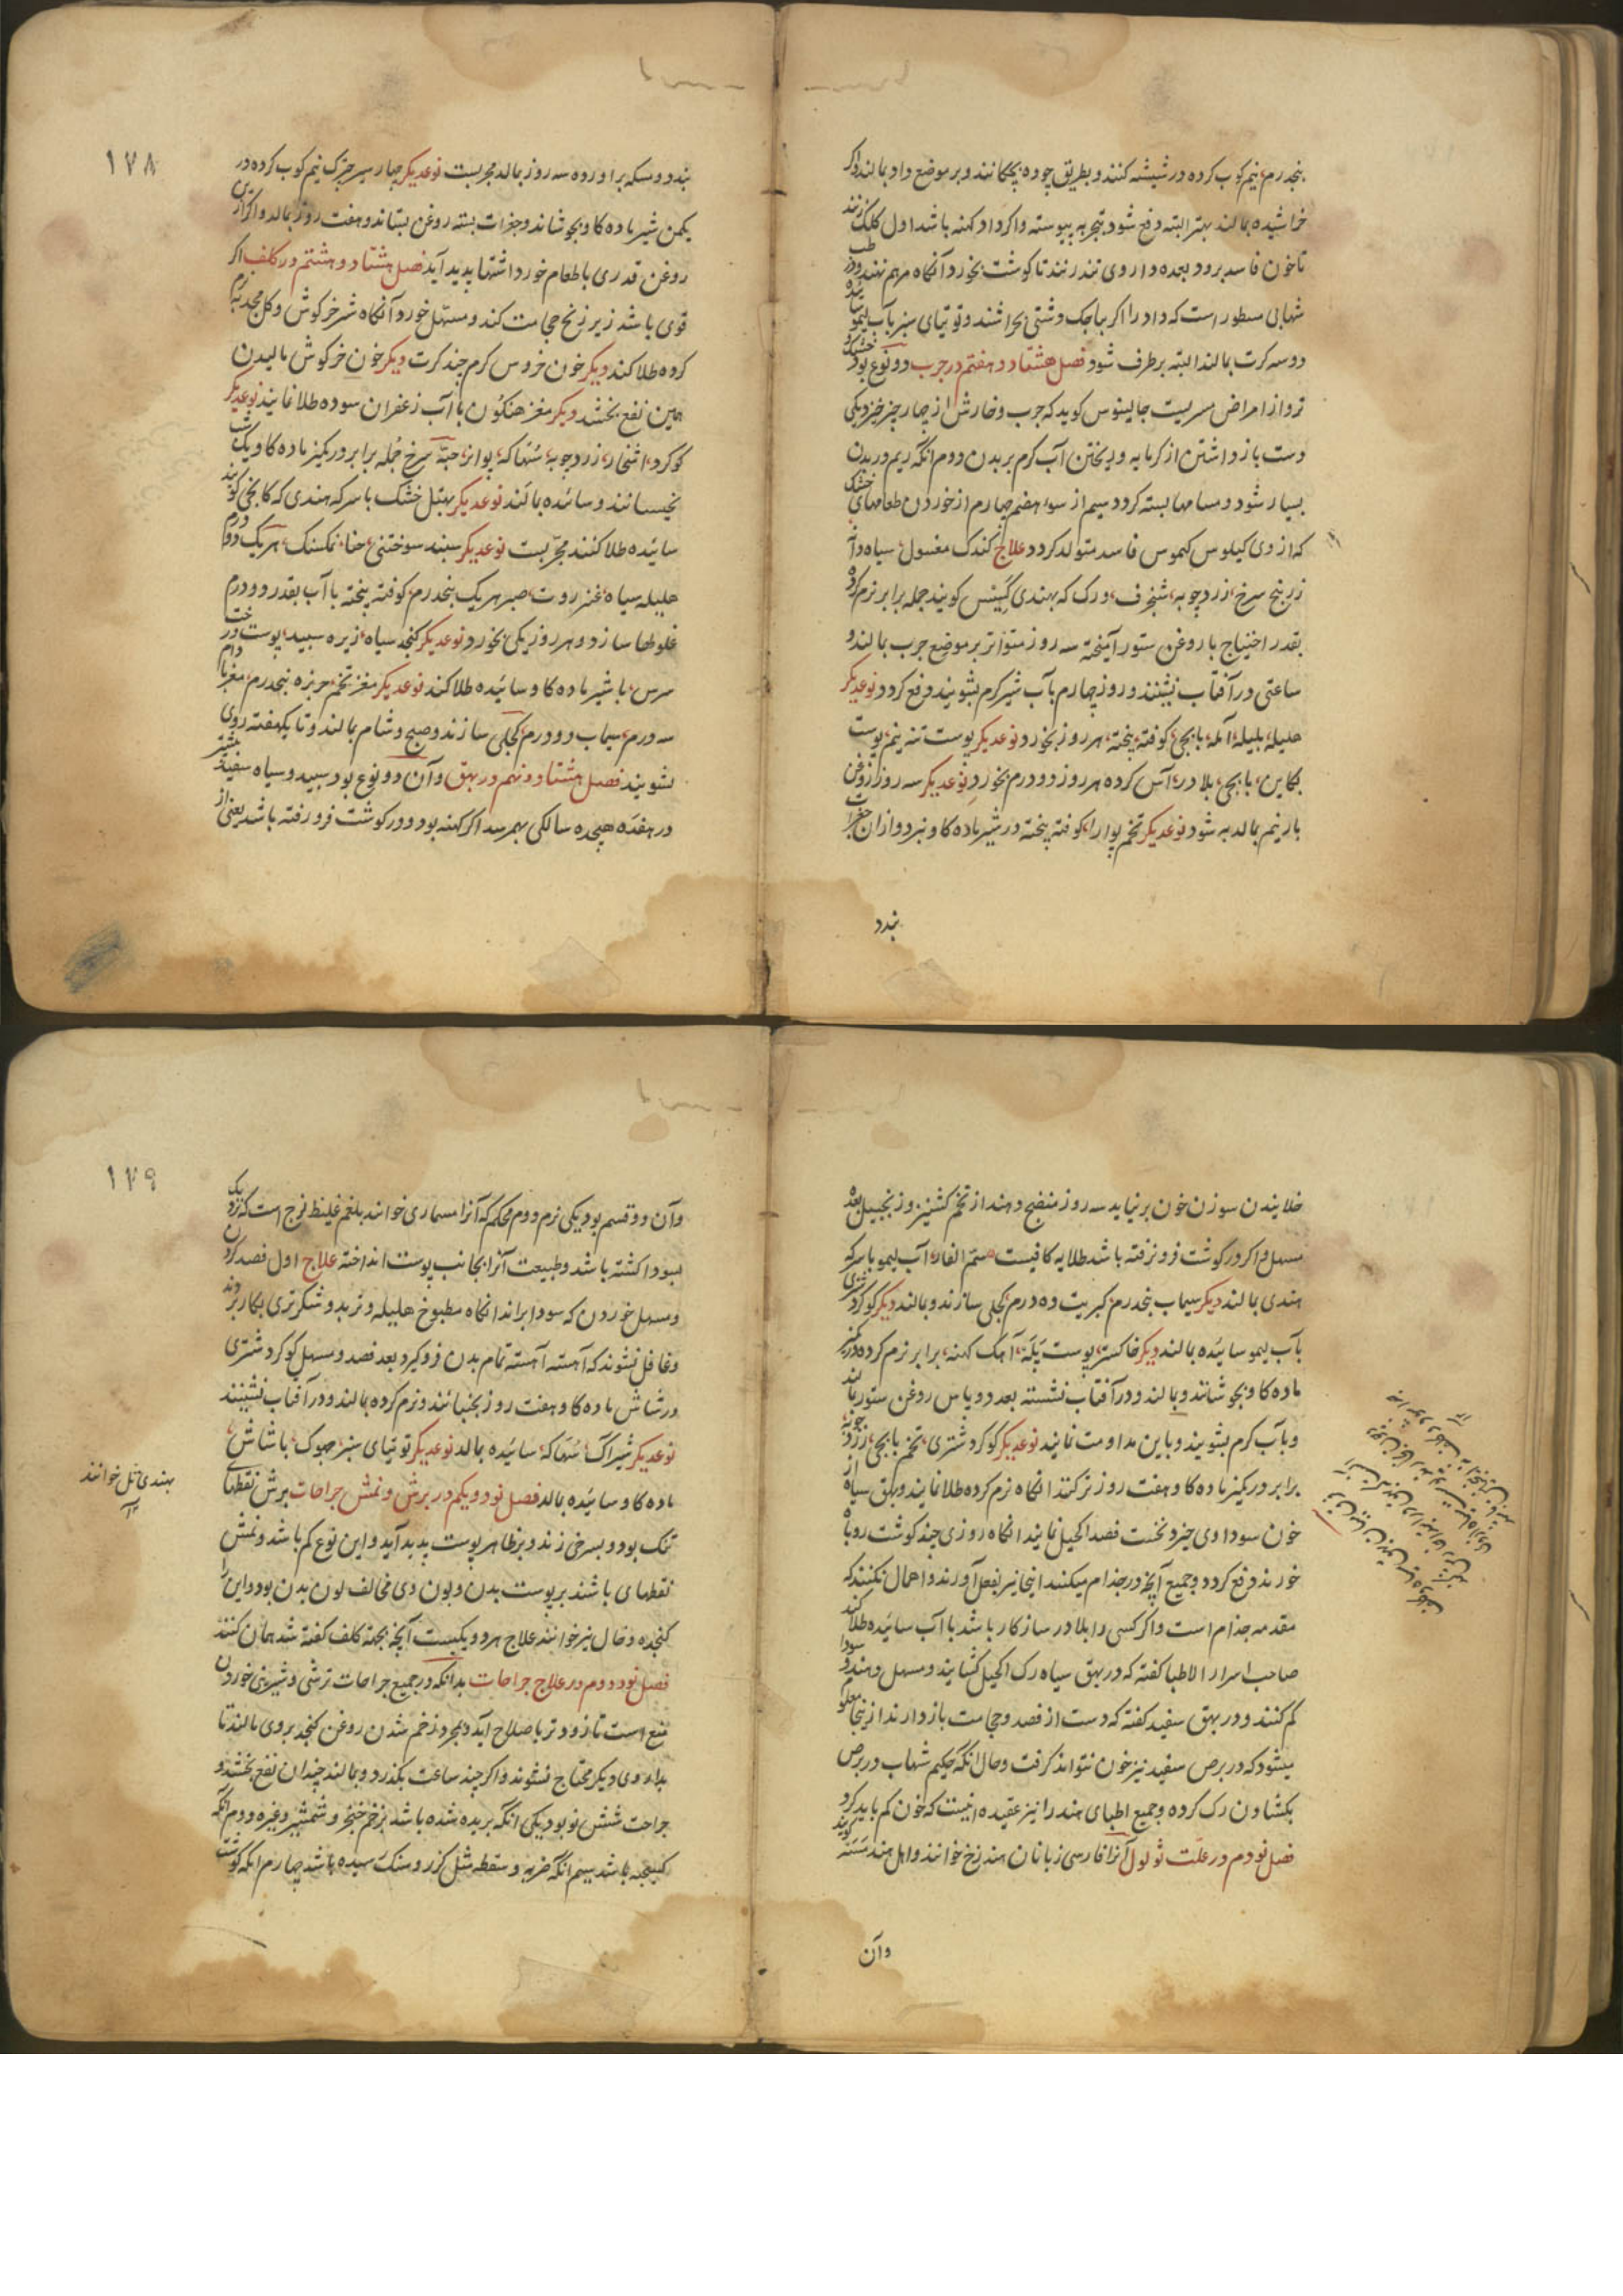 پنجدرم نیم کوب کرده در شیشه کنند و بطریق چوه بچکانند و بر موضع داد بمالند و اکر
خراشیده بمالند بهتر البته دفع شود بتجربه پیوسته و اکر داد کهنه باشد اول کلنک زنند
تا خون فاسد برود بعده داروی تند زنند تا کوشت بخورد آنکاه مرهم نهند و در طب
شهابی مسطور است که داد را اکر بپاچک دشتی بخراشند و توتیای سبز بآب لیمو سائیده
دو سه کرت بمالند البته برطرف شود فصل هشتاد و هفتم در جرب دو نوع بود خشک و
تر و از امراض مسریست جالینوس کوید که جرب و خارش از چهار چیز خیزد یکی
دست باز داشتن از کرمابه و ریختن آب کرم بر بدن دوم انکه ریم در بدن
بسیار شود و مسامها بسته کردد سیم از سوء هضم چهارم از خوردن طعامهای خشک
که از وی کیلوس کیموس فاسد متولد کردد علاج کندک مغسول، سیاه دانه
زرنیخ سرخ، زردچوبه، شنجرف، ورک که بهندی کینس کویند جمله برابر نرم کرده
بقدر احتیاج با روغن ستور آمیخته سه روز متواتر بر موضع جرب بمالند و
ساعتی در آفتاب نشینند و روز چهارم بآب شیر کرم بشویند دفع کردد نوعدیکر
هلیله، بلیله، آمله، بابجی، کوفته بیخته، هر روز بخورد نوعدیکر پوست تنه نیم، پوست
بکاین، بابجی، بلادر، آس کرده هر روز دو درم بخورد نوعدیکر سه روز از روغن
بار نیم بمالد به شود نوعدیکر تخم پوارا، کوفته بیخته در شیر ماده کاو نبرد و از ان جغرات
بندد
۱۷۸
بندد و مسکه براورده سه روز بمالد مجربست نوعدیکر چهار سیر چترک نیم کوب کرده در
یکمن شیر ماده کاو بجوشاند و جغرات بسته روغن بستاند و هفت روز بمالد و اکر ازین
روغن قدری با طعام خورد اشتها پدید آید فصل هشتاد و هشتم در کلف اکر
قوی باشد زیر زنخ حجامت کند و مسهل خورد آنکاه شرخرکوش و کل مجد نرم
کرده طلا کند دیکر خون خروس کرم چند کرت دیکر خون خرکوش مالیدن
همین نفع بخشد دیکر مغز هنکون با آب زعفران سوده طلا نمایند نوعدیکر
کوکرد، اشخار، زردچوبه، سهاکه، بوانز، حبّه سرخ جمله برابر در کمیز ماده کاو یکشب
بخیسانند و سائیده بمالند نوعدیکر بهتل خشک با سرکه هندی که کانجی کویند
سائیده طلا کنند مجرّبست نوعدیکر سپند سوختنی، حنا، نمکسنک، هریک دو درم
هلیله سیاه، عنزروت، صبر، هریک پنجدرم، کوفته بیخته با آب بقدر دو درم
غلولها سازد و هر روز یکی بخورد نوعدیکر کنجد سیاه، زیره سپید، پوست درخت
سرس، با شیر ماده کاو سائیده طلا کند نوعدیکر مغز تخم خربزه پنجدرم، مغز بادام
سه درم، سیماب دو درم، کجلی سازند و صبح و شام بمالند و تا یکهفته روی
نشویند فصل هشتاد و نهم در بهق و آن دو نوع بود سپید و سیاه سفید بیشتر
در هفده هیجده سالکی بهمرسد اکر کهنه بود و در کوشت فرو رفته باشد یعنی از
خلایندن سوزن خون برنیاید سه روز منضج دهند از تخم کشنیز و زنجبیل بعده
مسهل و اکر در کوشت فرو نرفته باشد طلایه کافیست سم الفار، آب لیمو با سرکه
هندی بمالند دیکر سیماب پنجدرم، کبریت ده درم، کجلی سازند و بمالند دیکر کوکرد شتری
بآب لیمو سائیده بمالند دیکر خاکستر پوست پکه، آهک کهنه، برابر نرم کرده در کمیز
ماده کاو بجوشانند و بمالند و در آفتاب نشسته بعد دو پاس روغن ستور بمالند
و بآب کرم بشویند و باین مداومت نمایند نوعدیکر کوکرد شتری، تخم بابچی، زردچوبه
برابر در کمیز ماده کاو هفت روز تر کنند انکاه نرم کرده طلا نمایند و بهق سیاه از
خون سوداوی خیزد نخست فصد اکحیل نمایند انکاه روزی چند کوشت روباه
خورند دفع کردد و جمیع آنچه در جذام میکنند اینجا نیز بفعل آورند و اهمال نکنند که
مقدمه جذام است و اکر کسی را بلادر سازکار باشد با آب سائیده طلا کند
صاحب اسرار الاطبا کفته که در بهق سیاه رک اکحیل کشایند و مسهل دهند و سودا
کم کنند و در بهق سفید کفته که دست از فصد و حجامت باز دارند از ینجا معلوم
میشود که در برص سفید نیز خون نتواند کرفت و حال انکه حکیم شهاب در برص
بکشادن رک کرده و جمیع اطبای هند را نیز عقیده اینست که خون کم باید کرد
فصل نودم در علّت ثولول آنرا فارسی زبانان هند زخ خوانند و اهل هند مسّه کویند
وآن
۱۷۹
وآن دو قسم بود یکی نرم دوم محکم که آنرا مسماری خوانند بلغم غلیظ لزج است که نزدیک
بسودا کشته باشد و طبیعت آنرا بجانب پوست انداخته علاج اول فصد کردن
و مسهل خوردن که سودا براند انکاه مطبوخ هلیله و تربد و شکر تری بکار برند
و غافل نشوند که آهسته آهسته تمام بدن فرو کیرد بعد فصد و مسهل کوکرد شتری
در شاش ماده کاو هفت روز بخنبانند و نرم کرده بمالند و در آفتاب نشینند
نوعدیکر شیراک، سهاکه، سائیده بمالد نوعدیکر توتیای سبز، چوک، با شاش
ماده کاو سائیده بمالد فصل نود و یکم در برش و نمش جراحات برش نقطهای
تنک بود و بسرخی زند و بر ظاهر پوست پدید آید و این نوع کم باشد و نمش
نقطهای باشند بر پوست بدن و بون وی مخالف لون بدن بود و این را
کنجده و خال نیز خوانند علاج هر دو یکیست آنچه بجهة کلف کفته شد همان کنند
فصل نود و دوم در علاج جراحات بدانکه در جمیع جراحات ترشی و شیرینی خوردن
منع است تا زودتر باصلاح آید و بمجرد زخم شدن روغن کنجد بروی مالند تا
بداروی دیکر محتاج نشوند و اکر چند ساعت بکذرد و بمالند چندان نفع بخشد و
جراحت شش نو بود یکی انکه بریده شده باشد بزخم خنجر و شمشیر و غیره دوم انکه
کسیجه باشد سیم انکه ضربه و سقطه مثل کزر و سنک رسیده باشد چهارم انکه کوشت
بهندی تل خوانند